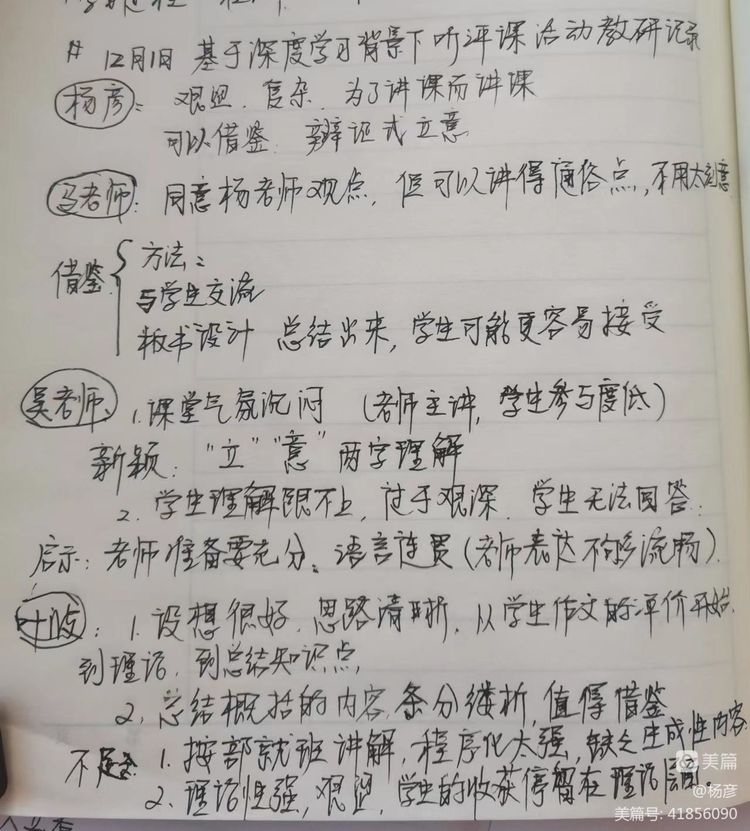 # 12月1日 基于深度学习背景下听评课活动教研记录
杨彦：艰涩、复杂、为了讲课而讲课
可以借鉴：辩证式立意
冯老师：同意杨老师观点，但可以讲得通俗点，不用太刻意
借鉴 方法：
与学生交流
板书设计 总结出来，学生可能更容易接受
吴老师：1.课堂气氛沉闷 （老师主讲，学生参与度低）
新颖："立""意"两字理解
2.学生理解跟不上，过于艰深，学生无法回答；
启示：老师准备要充分。语言连贯（老师表达不够流畅）.
1.设想很好，思路清晰，从学生作文的评价开始，
到理论，到总结知识点
2.总结概括的内容，条分缕析，值得借鉴
不足：1.按部就班讲解，程序化太强，缺乏生成性内容
2.理论性强，艰涩，学生的收获停留在理论层面。
美篇
@杨彦
美篇号：41856090